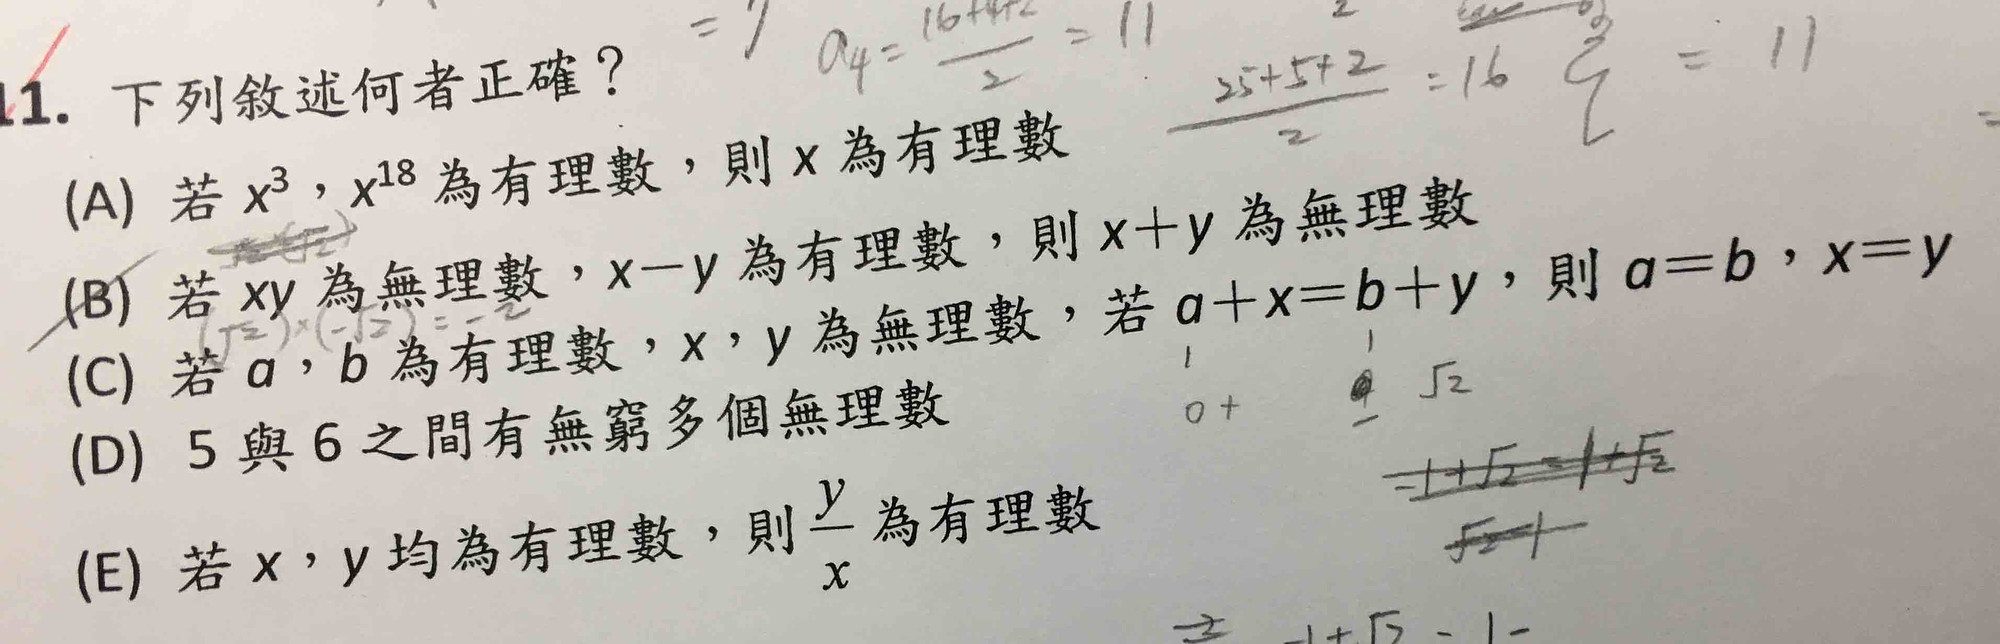 = 7
a₄ = (16+4+2)/2 = 11
(25+5+2)/2 = 16
= 11
11. 下列敘述何者正確？
(A) 若 x³，x¹⁸ 為有理數，則 x 為有理數
(B) 若 xy 為無理數，x－y 為有理數，則 x＋y 為無理數
(√2)×(-√2) = -2
(C) 若 a，b 為有理數，x，y 為無理數，若 a＋x＝b＋y，則 a＝b，x＝y
1 1
0 + √2
(D) 5 與 6 之間有無窮多個無理數
-1+√2 = 1+√2
(E) 若 x，y 均為有理數，則 y/x 為有理數
-1+√2 = 1-